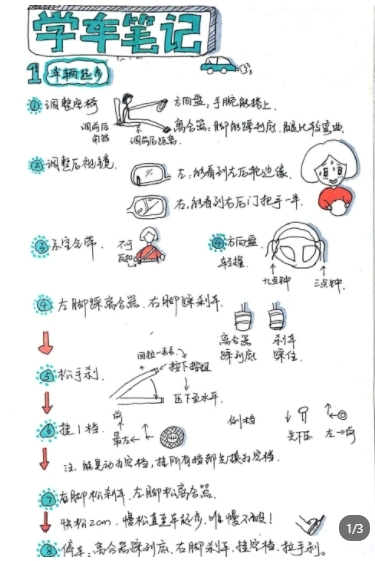 学车笔记
1 车辆起步
① 调整座椅
方向盘:手腕能搭上.
离合器:脚能踩到底.腿比较弯曲.
调前后
调前后距离
② 调整后视镜
左,能看到左后轮边缘.
右,能看到右后门把手一半.
③ 系安全带.
④ 方向盘
轻握
九点钟
三点钟.
④ 左脚踩离合器.右脚踩刹车.
离合器
踩到底
刹车
踩住.
⑤ 松手刹.
回拉一点点
按下按钮
压下至水平.
⑥ 挂1档.
前
最左
倒档
先下压
左→向
注.
⑦ 右脚松刹车.左脚松离合器.
快松2cm.慢松直至车起步.唯慢不破!
⑧ 停车:离合器踩到底.右脚刹车.挂空档.拉手刹。
1/3